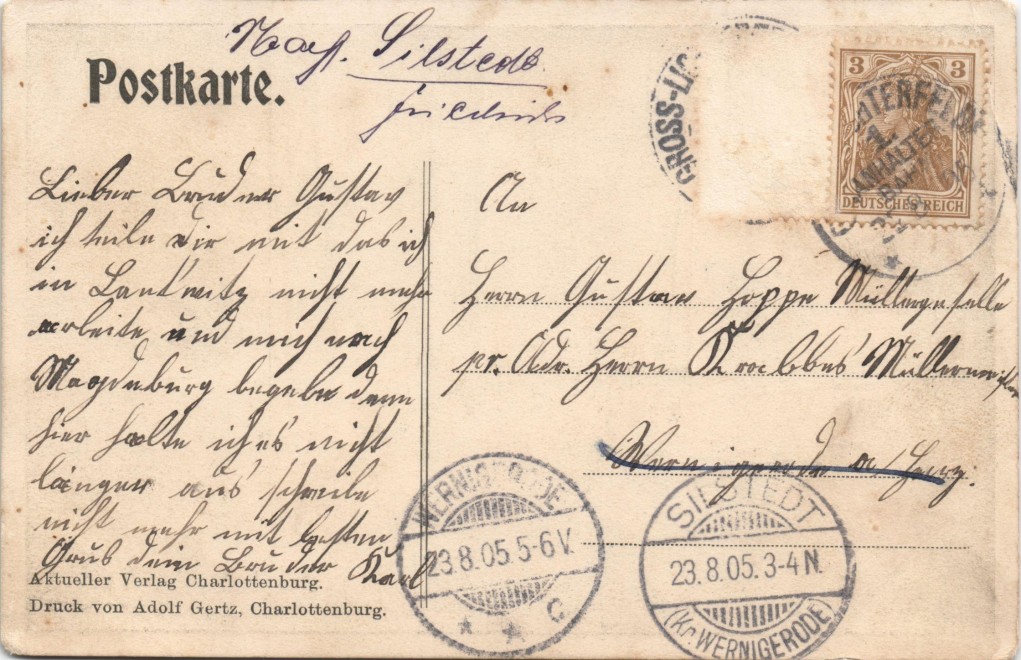 Nach Silstedt
Friedrichs
Postkarte.
GROSS-LICHTERFELDE
ANHALTER
BAHNH.
3 3
DEUTSCHES REICH
Lieber Bruder Gustav
ich teile dir mit das ich
in Lankwitz nicht mehr
arbeite und mich nach
Magdeburg begebe denn
hier halte ich es nicht
länger aus schreibe
nicht mehr mit besten
Grus dein Bruder Karl
An
Herrn Gustav Hoppe Müllergeselle
pr. Adr. Herrn Krabbes Müllermeister
Wernigerode a/Harz.
WERNIGERODE
23.8.05.5-6V.
* * C
SILSTEDT
23.8.05.3-4N.
(Kr. WERNIGERODE)
Aktueller Verlag Charlottenburg.
Druck von Adolf Gertz, Charlottenburg.